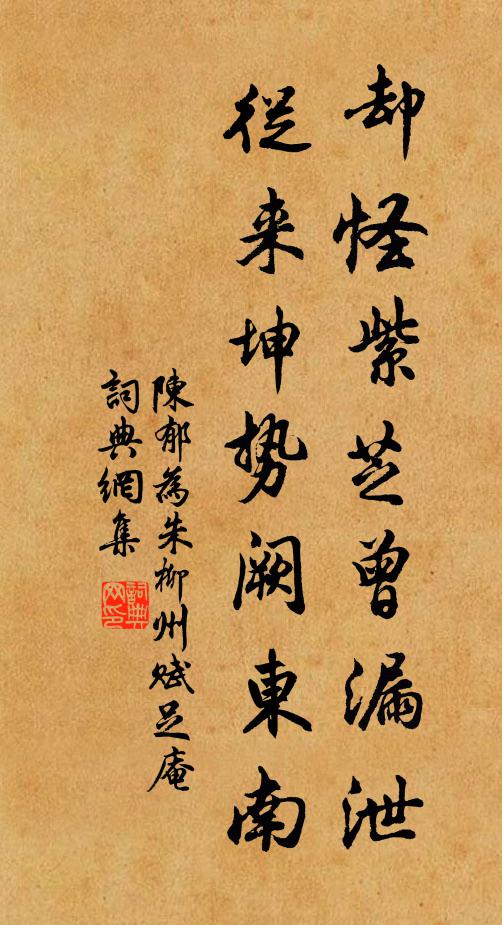 却怪紫芝曾漏泄
從来坤势阙東南
陳郁為朱柳州赋足庵
詞典網集
詞典网印